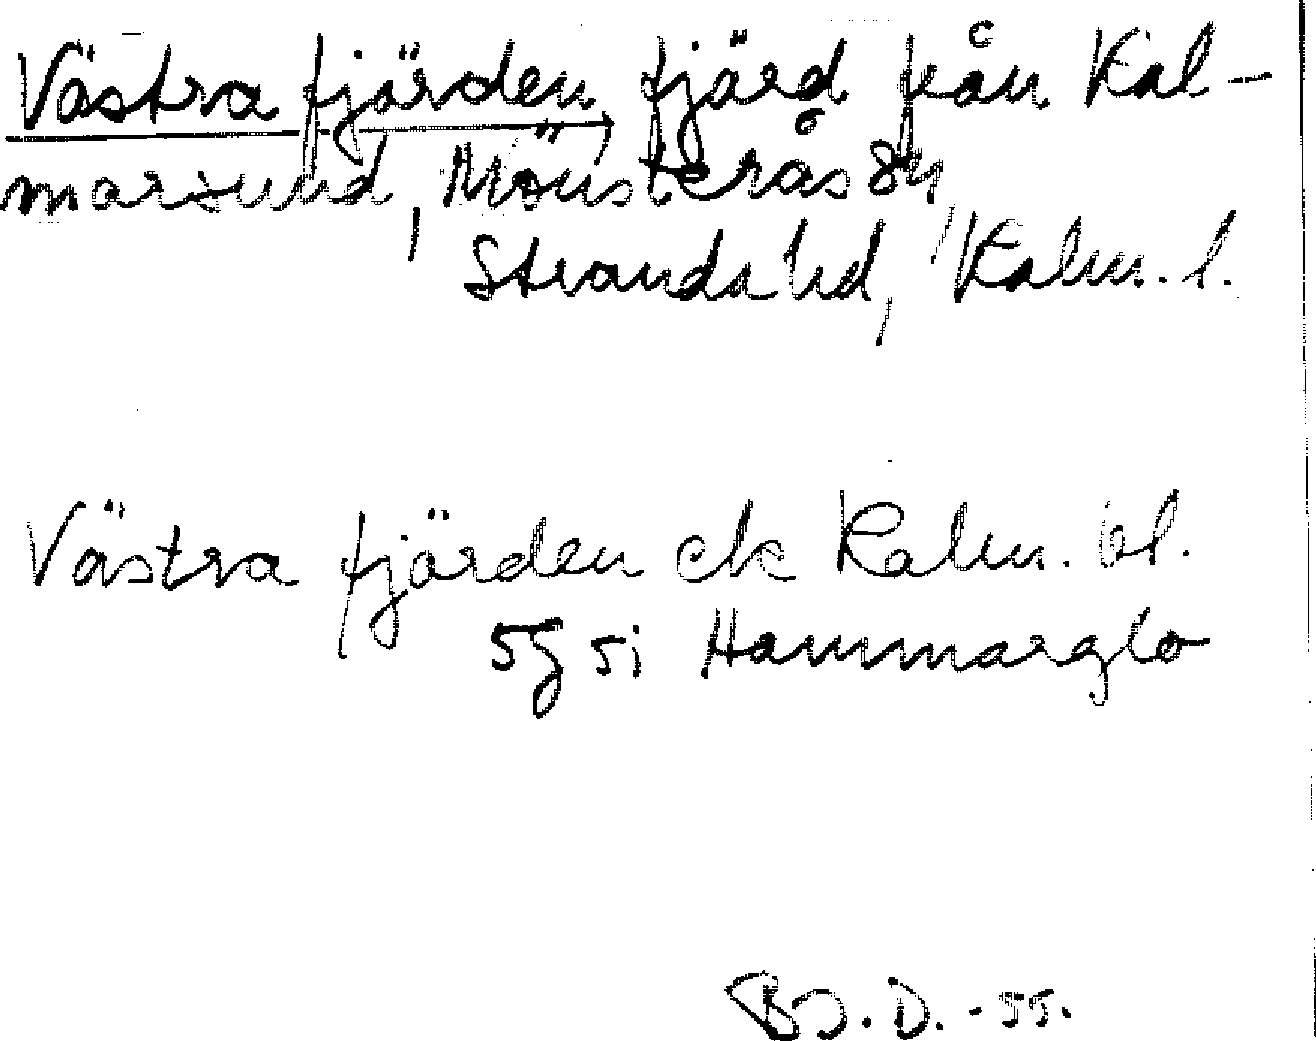 Västra fjärden, fjärd från Kal-
marsund, Mönsterås sn,
Stranda hd, Kalm. l.
Västra fjärden ek Kalm. bl.
5g 5i Hammarglo
BJ.D.-55.